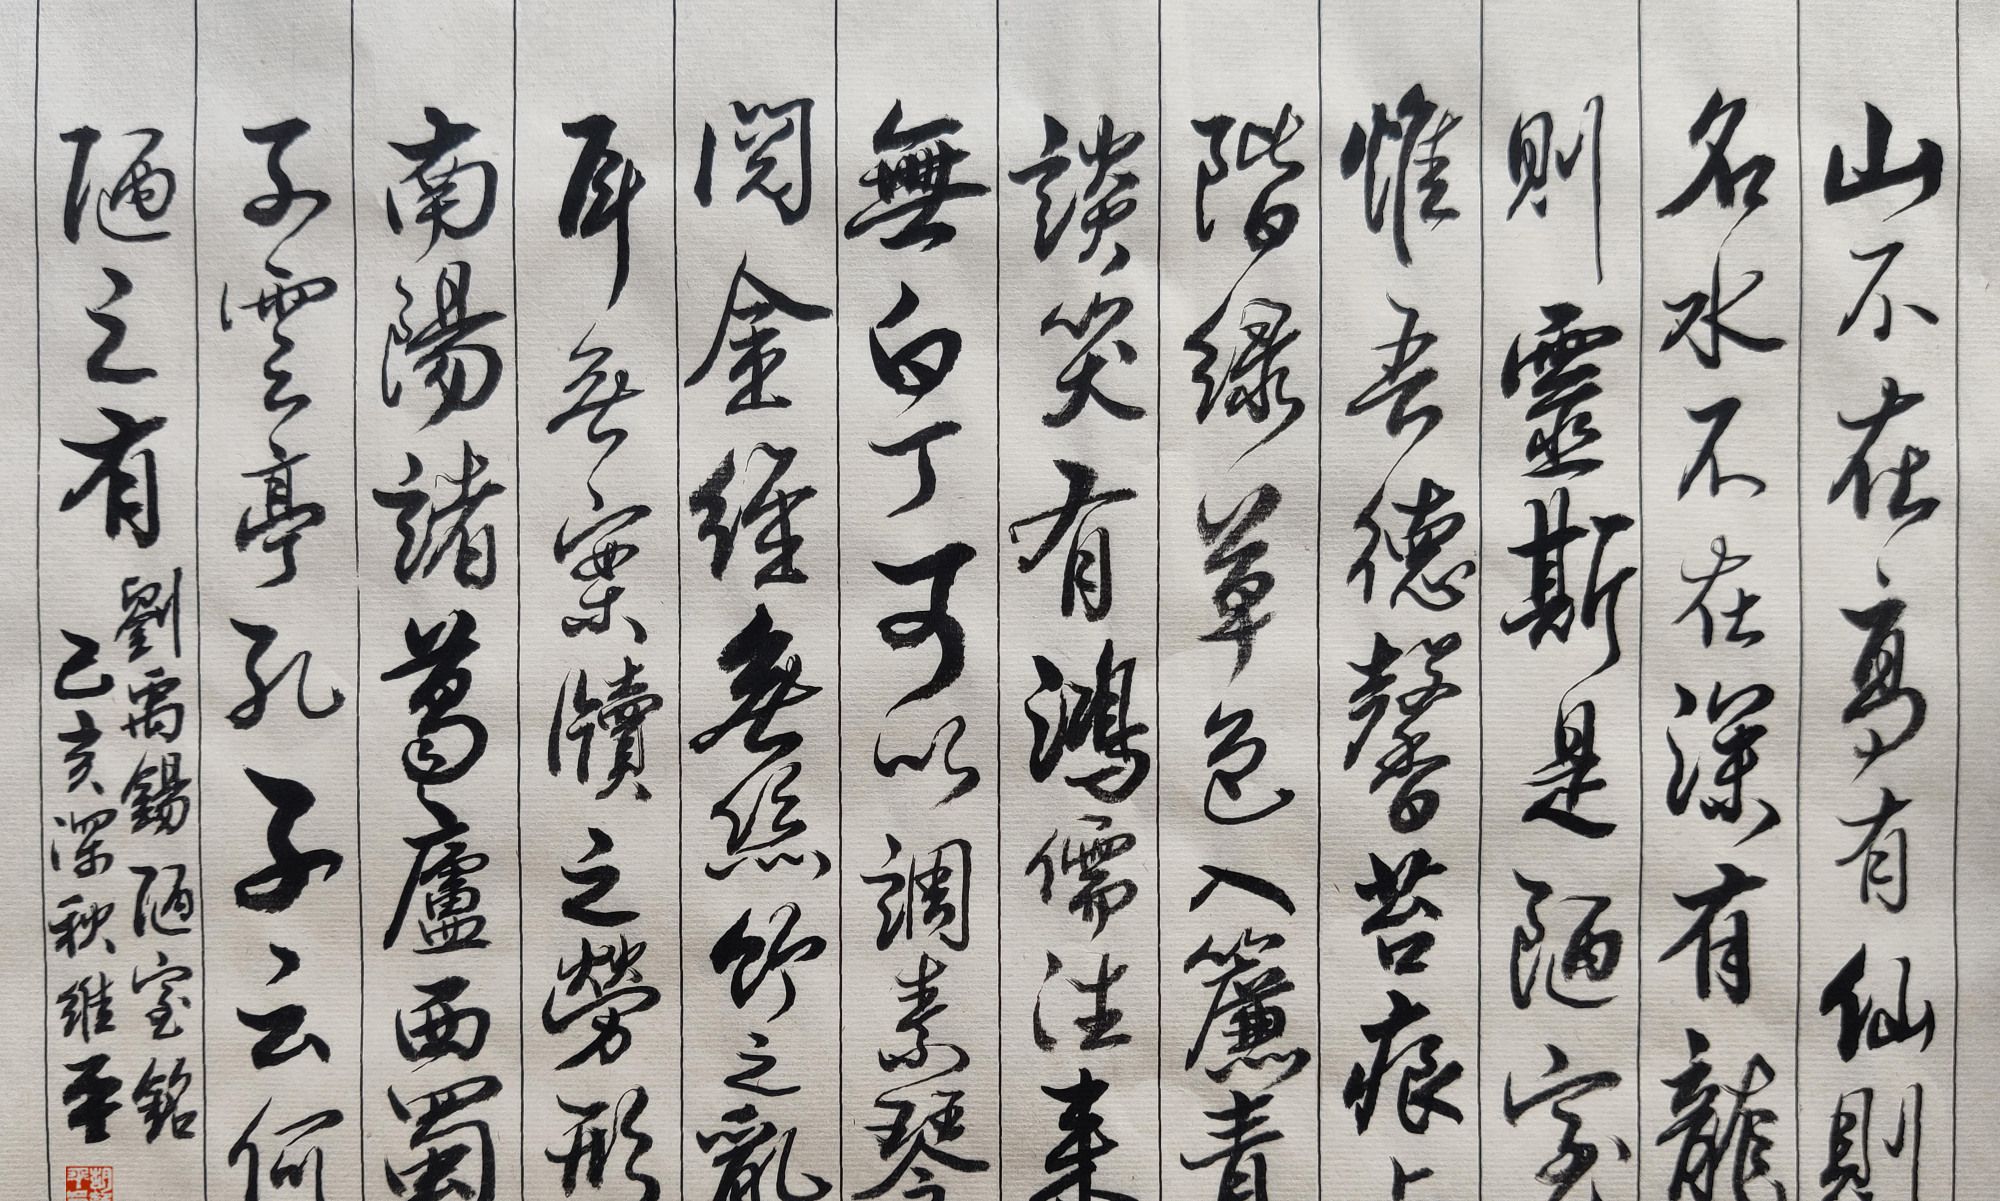 山不在高有仙則
名水不在深有龍
則靈斯是陋室
惟吾德馨苔痕上
階緑草色入簾青
談笑有鴻儒往来
無白丁可以調素琴
閱金經無絲竹之亂
耳無案牘之勞形
南陽諸葛廬西蜀
子雲亭孔子云何
陋之有
劉禹錫陋室銘
己亥深秋維平